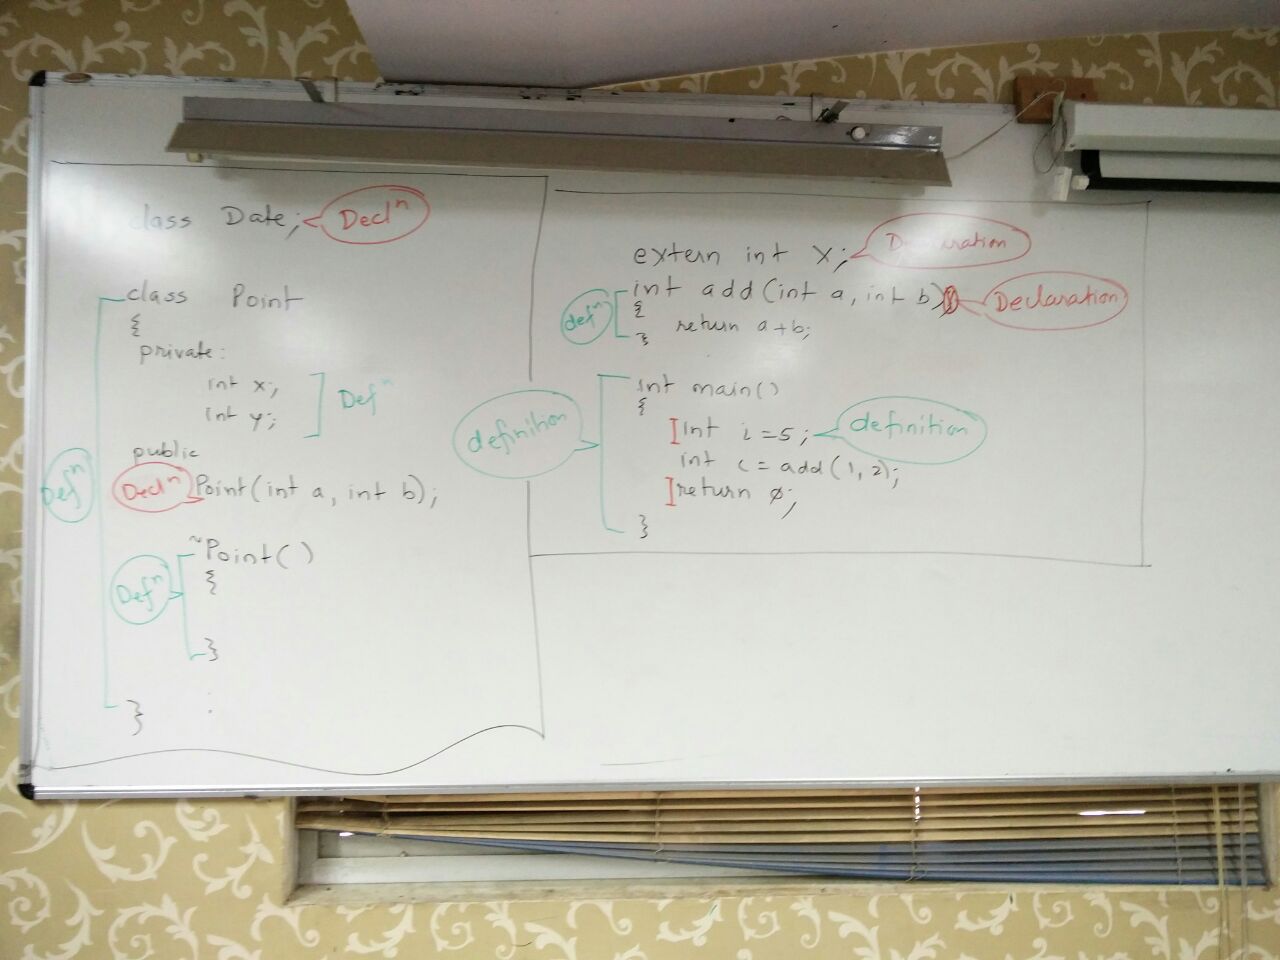 class Date; Declⁿ
class Point
{
private:
int x;
int y;
Defⁿ
public
Declⁿ Point(int a, int b);
Defⁿ
~Point()
{
Defⁿ
}
}
extern int x; Declaration
int add(int a, int b) Declaration
defⁿ
{
return a+b;
}
int main()
{
definition
int i=5; definition
int c = add(1, 2);
return 0;
}